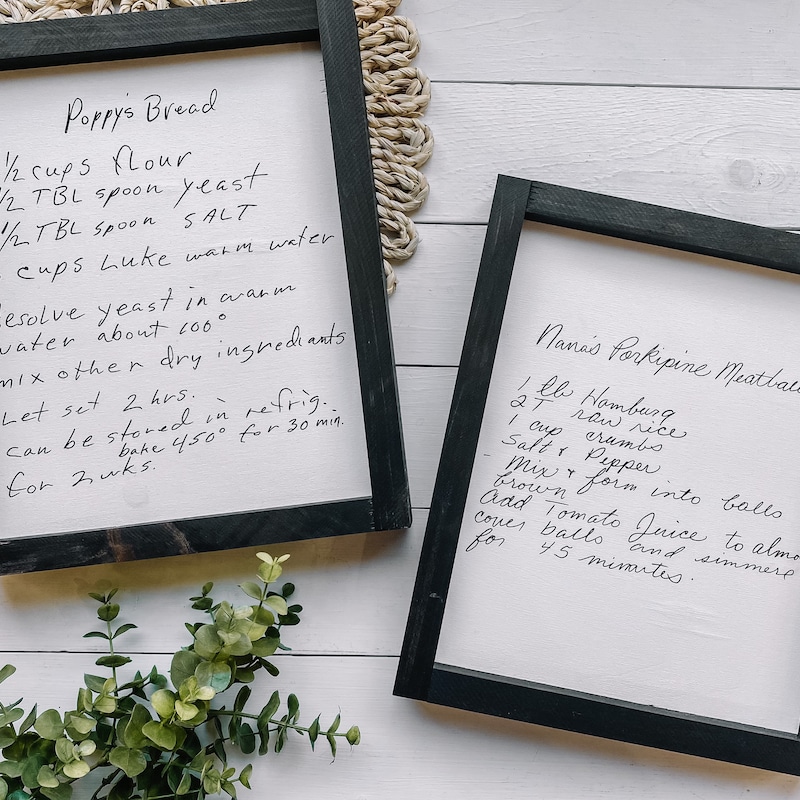 Poppy's Bread
1/2 cups flour
1/2 TBL spoon yeast
1/2 TBL spoon SALT
cups Luke warm water
esolve yeast in warm
water about 100°
mix other dry ingrediants
Let set 2 hrs.
can be stored in refrig.
bake 450° for 30 min.
for 2 wks.
Nana's Porkipine Meatball
1 lb Hamburg
2T raw rice
1 cup crumbs
Salt & Pepper
- Mix & form into balls
brown
Add Tomato Juice to almo
cover balls and simmere
for 45 minutes.